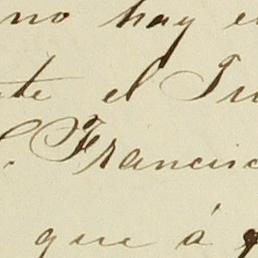 no hay e
te el Tu
S. Francisc
que á g